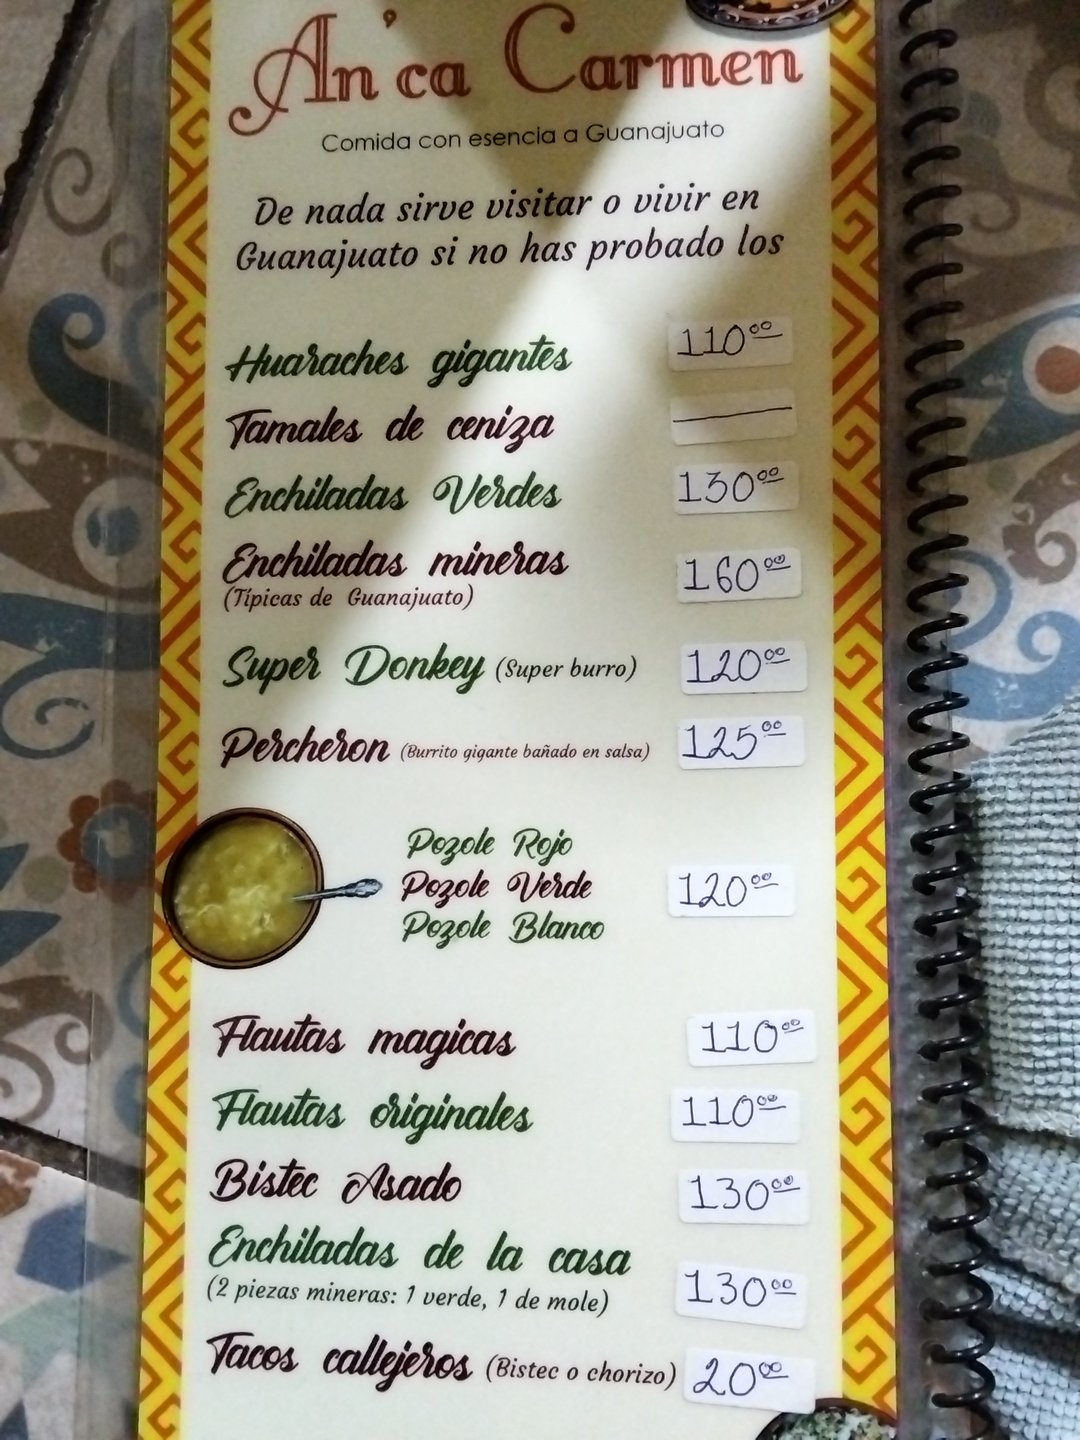 An'ca Carmen
Comida con esencia a Guanajuato
De nada sirve visitar o vivir en
Guanajuato si no has probado los
Huaraches gigantes 110.00
Tamales de ceniza —
Enchiladas Verdes 130.00
Enchiladas mineras 160.00
(Típicas de Guanajuato)
Super Donkey (Super burro) 120.00
Percheron (Burrito gigante bañado en salsa) 125.00
Pozole Rojo
Pozole Verde 120.00
Pozole Blanco
Flautas magicas 110.00
Flautas originales 110.00
Bistec Asado 130.00
Enchiladas de la casa
(2 piezas mineras: 1 verde, 1 de mole) 130.00
Tacos callejeros (Bistec o chorizo) 20.00